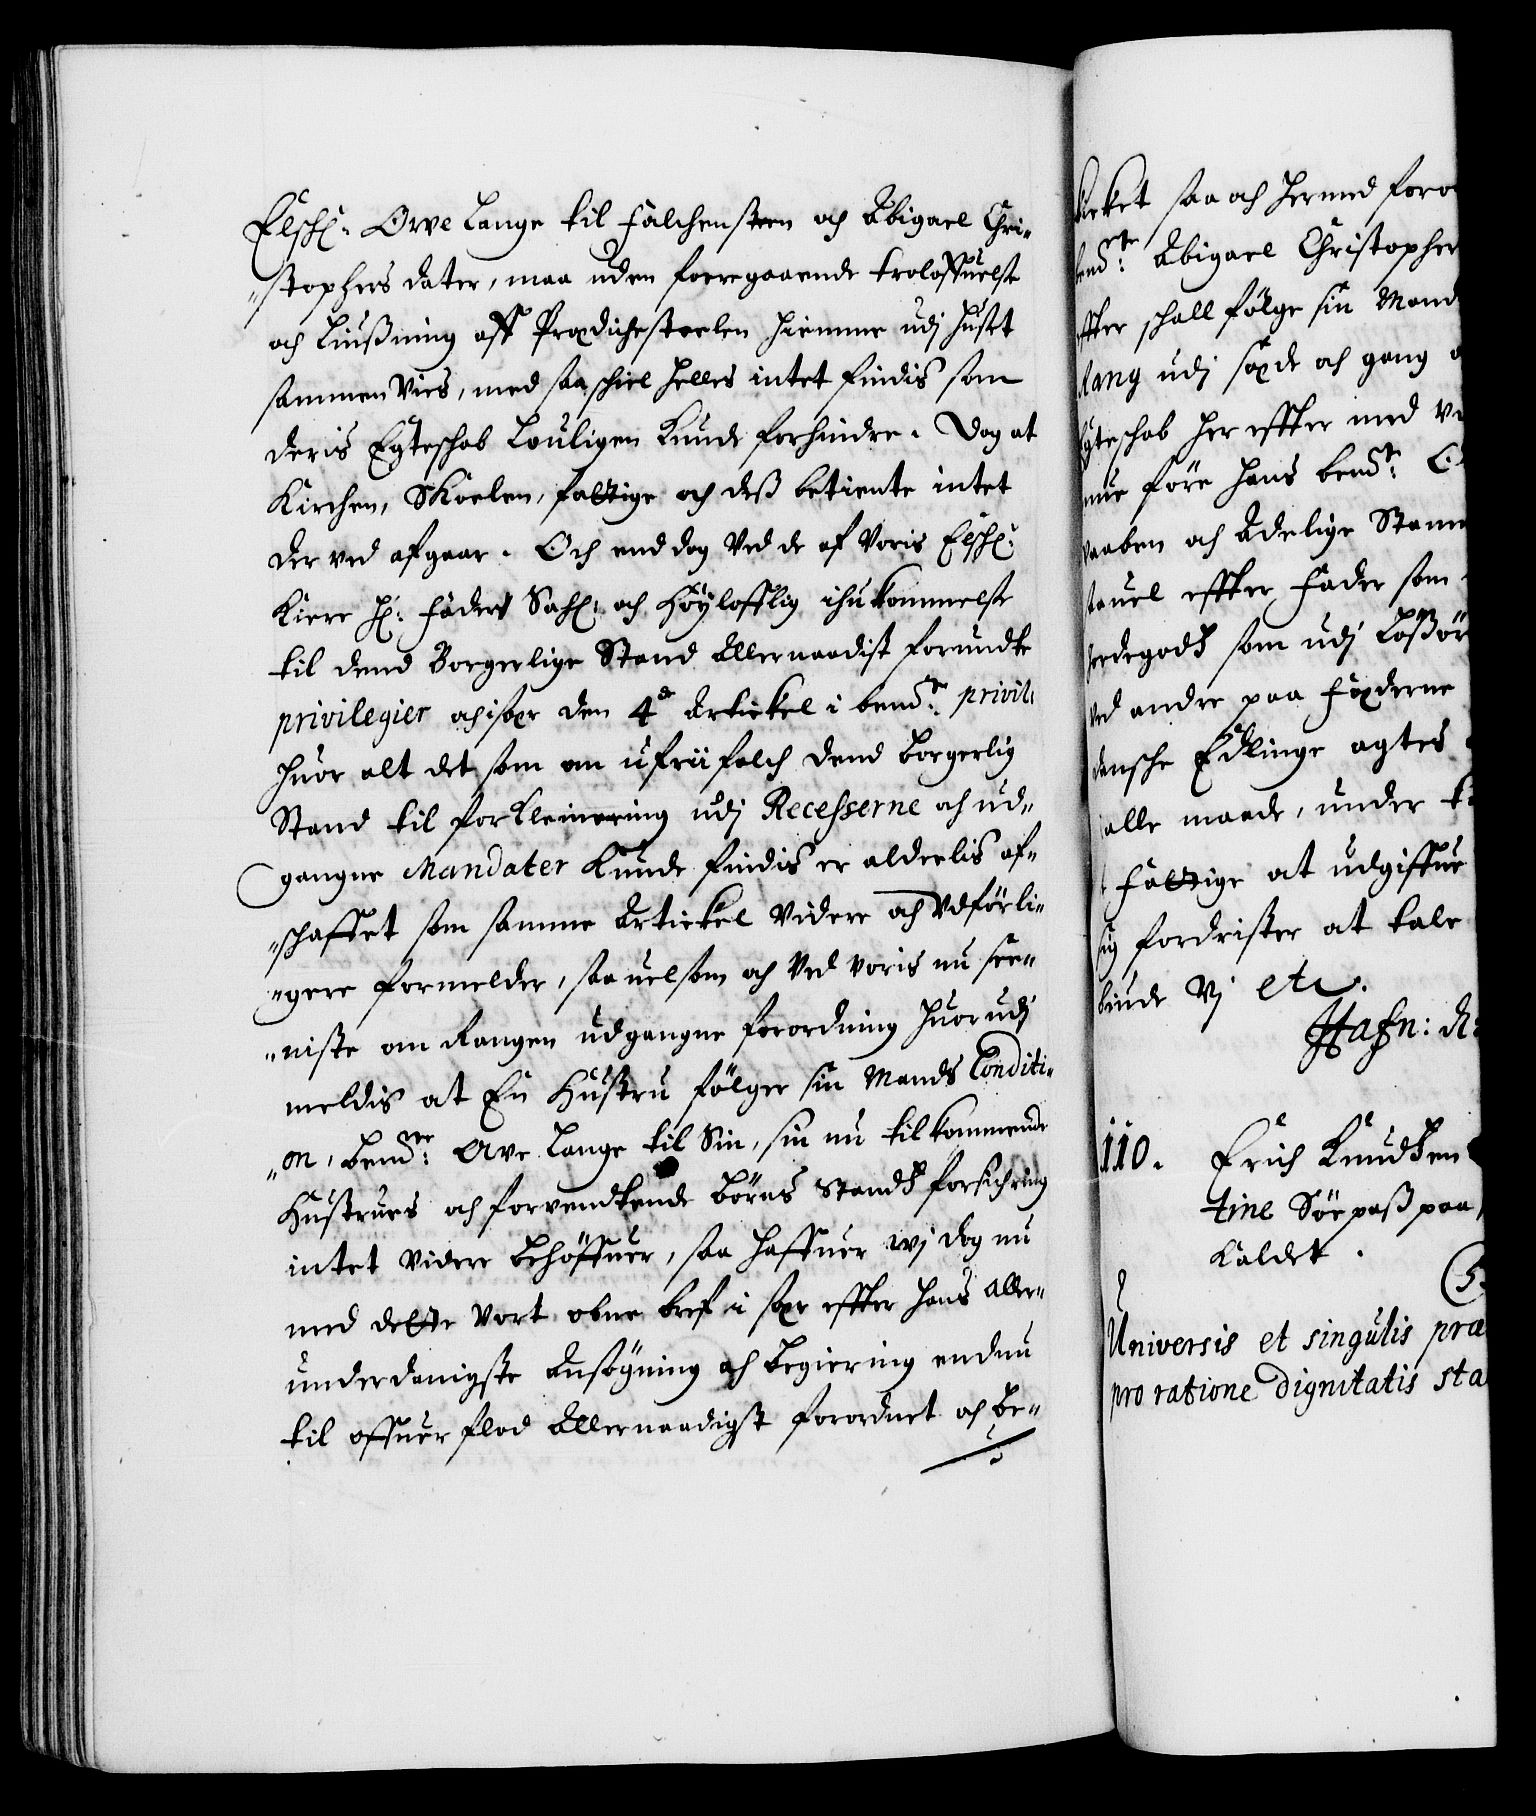 Elskl: Owe Lange til Falchensteen och Abigael Chri-
stophers dater, maa uden foregaaende trolofuelse
och Liusning aff Prædichestoelen hiemme udj huset
sammen Vies, med saa schiel helles intet findis som
deris Egteschab Louligen kunde forhindre. Dog at
Kirchen, Skoelen, fattige och deß betiente intet
der ved afgaar. Och end dog Ved de af Voris Elskl:
Kiere Hr: Faders Sahl: och Höylofflig ihukommelse
til dend Borgerlige Stand Allernaadist forundte
privilegier och især den 4de Artickel i bemte: privil:
huor alt det som om ufrii folch dend borgerlig
Stand til forkleinering udj Recesserne och ud-
gangne Mandater kunde findis er alderlis af-
schaffet som samme Artickel Videre och Vdförli-
gere formelder, saauelsom och Ved Voris nu see-
niste om Rangen udgangne forordning huorudj
meldis at En Hustru fölger sin Mands Conditi-
on, bemte: Owe Lange til Sin, sin nu tilkommende
Hustrues och forventende börns Stands forsichring
intet Videre behöffuer, saa haffuer wj dog nu
med dette Vort obne bref i sær effter hans aller-
underdanigste Ansögning och begiering endnu
til offuerflod Allernaadigst forordnet och be-
kirket saa och hermed foror
bemte: Abigael Christopher
effter schall fölge sin Mand
Rang udj sæde och gang
Egteschab her effter med
nue före hans bemte: O
vaaben och Adelige Stam
sauel effter Fader som
Jordegods som udj Lößör
ved andre paa Fæderne
danske Edlinge agtes
alle maade, under
fattige at udgiffue
sig fordrister at tale
biude Vj etc.
Hafn: d:
110. Erich Knudsen
tine Söepaß paa
kaldet.
Universis et singulis præ
pro ratione Dignitatis sta